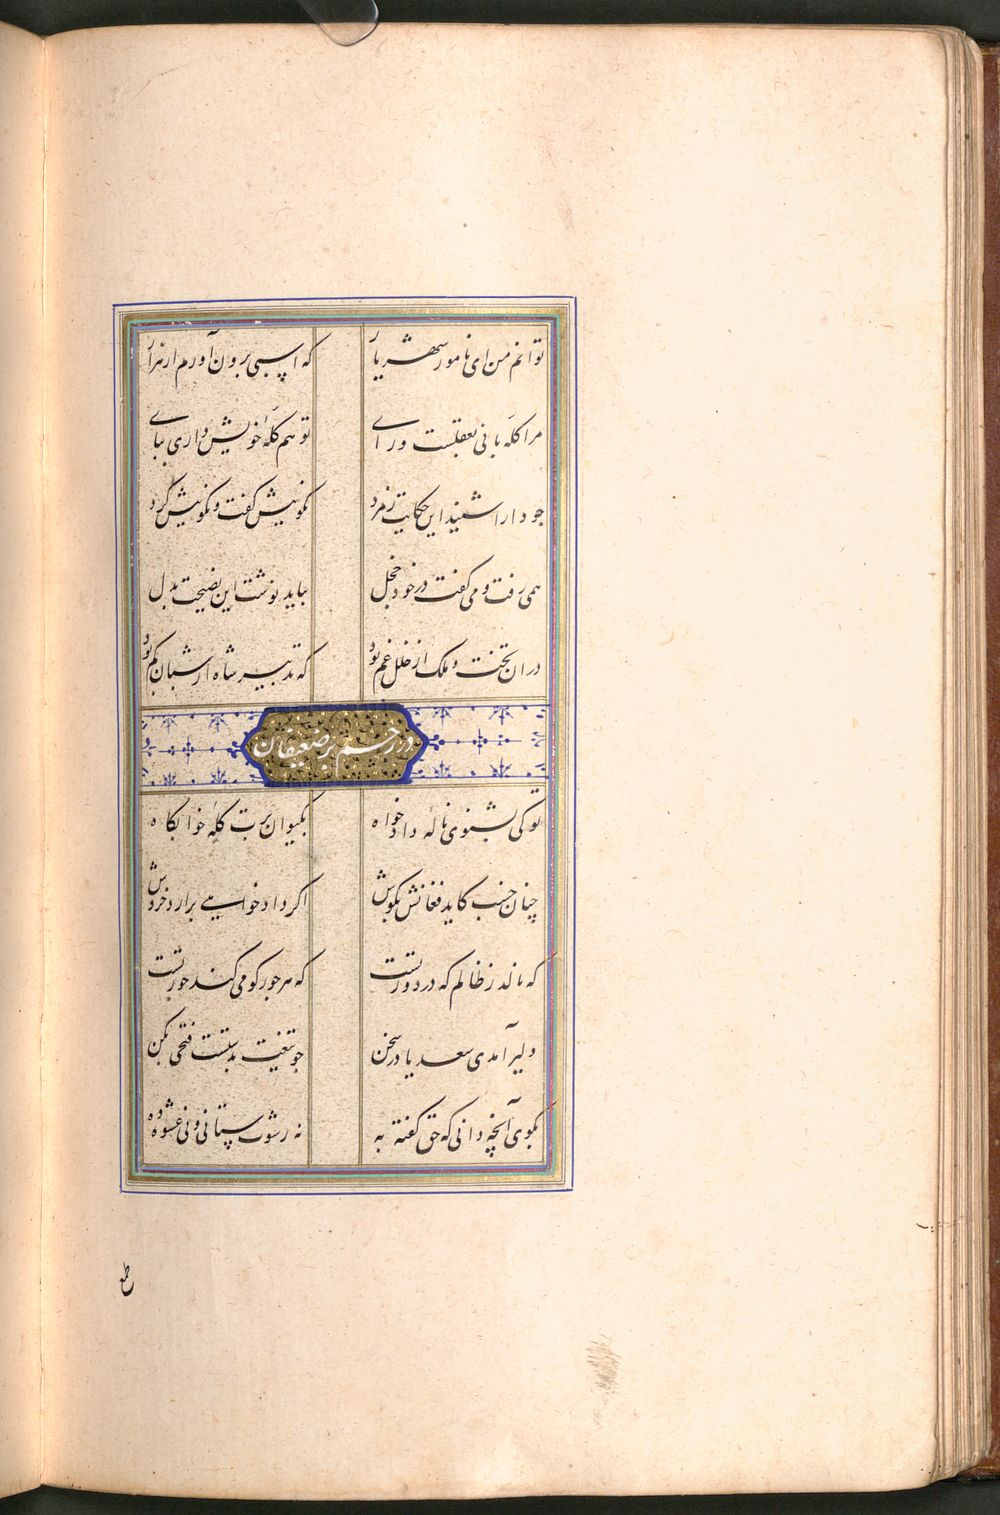 توانم من ای نامور شهریار که اسبی برون آورم از هزار
مرا کلّه بانی بعقلست و رای تو هم کلّهٔ خویش داری بپای
جو دارا شنید این حکایت ز مرد نکوئیش کفت و نکوئیش کرد
همی رفت و می کفت در خود خجل بباید نوشت این نصیحت بدل
در ان تخت و ملک از خلل غم بود که تدبیر شاه از شبان کم بود
در رحم بر ضعیفان
تو کی بشنوی نالهٔ دادخواه بکیوان برت کلّهٔ خوابکاه
چنان خسب کاید فغانش بکوش اکر دادخواهی برارد خروش
که نالد ز ظالم که در دور تست که هر جور کو می کند جور تست
دلیر آمدی سعدیا در سخن جو تیغت بدستست فتحی بکن
بکوی آنچه دانی که حق کفته به نه رشوت ستانی و نی عشوه ده
طمع